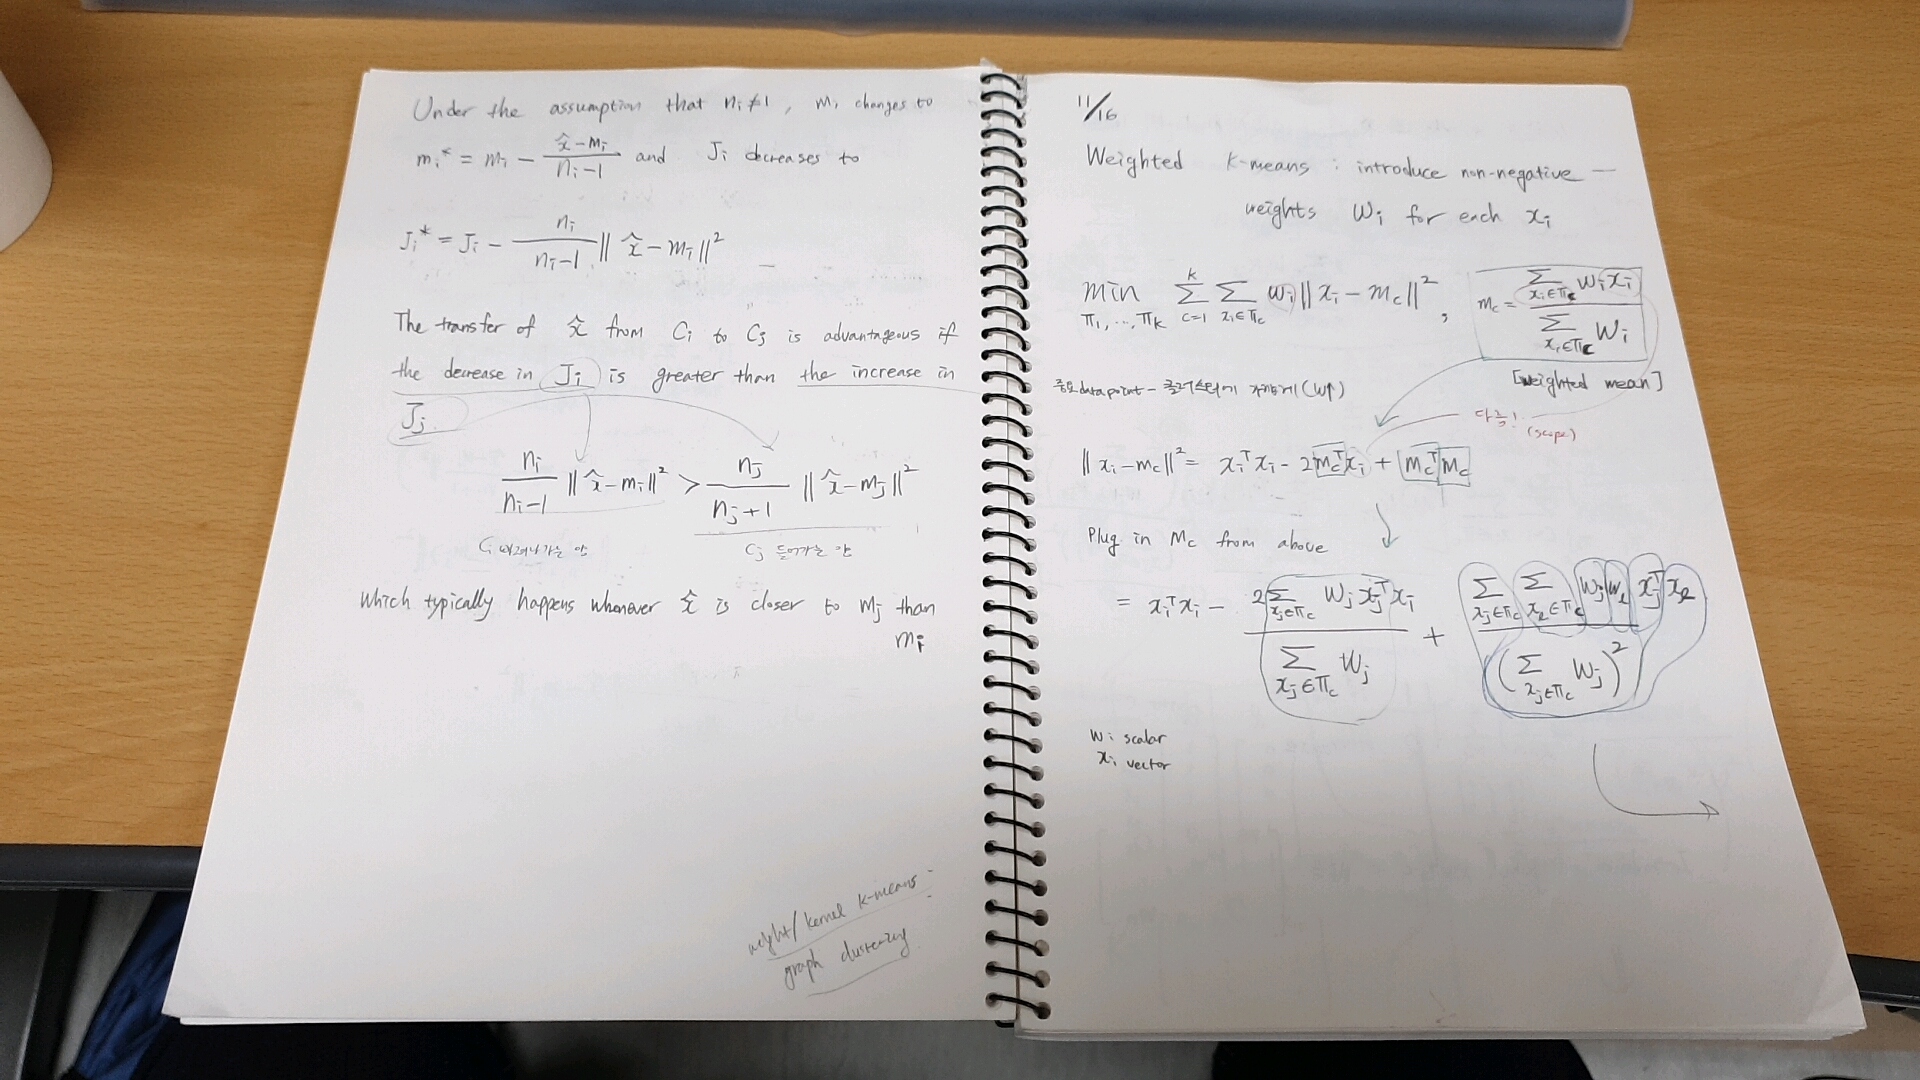 Under the assumption that nᵢ≠1, mᵢ changes to
mᵢ* = mᵢ − (x̂−mᵢ)/(nᵢ−1) and Jᵢ decreases to
Jᵢ* = Jᵢ − nᵢ/(nᵢ−1) ‖x̂−mᵢ‖²
The transfer of x̂ from Cᵢ to Cⱼ is advantageous if
the decrease in Jᵢ is greater than the increase in
Jⱼ.
nᵢ/(nᵢ−1) ‖x̂−mᵢ‖² > nⱼ/(nⱼ+1) ‖x̂−mⱼ‖²
Cⱼ 들어가는
which typically happens whenever x̂ is closer to mⱼ than
mᵢ
weight/kernel k-means
graph clustering
11/16
Weighted k-means : introduce non-negative
weights wᵢ for each xᵢ
min_{π₁,…,πₖ} Σ_{c=1}^{k} Σ_{xᵢ∈π_c} wᵢ‖xᵢ−m_c‖², m_c = Σ_{xᵢ∈π_c} wᵢxᵢ / Σ_{xᵢ∈π_c} wᵢ
[weighted mean]
중요 data point – 클러스터에 가깝게 (w↑)
다름!
(scope)
‖xᵢ−m_c‖² = xᵢᵀxᵢ − 2m_cᵀxᵢ + m_cᵀm_c
Plug in m_c from above
= xᵢᵀxᵢ − 2Σ_{xⱼ∈π_c} wⱼxⱼᵀxᵢ / Σ_{xⱼ∈π_c} wⱼ + Σ_{xⱼ∈π_c} Σ_{xₗ∈π_c} wⱼwₗxⱼᵀxₗ / (Σ_{xⱼ∈π_c} wⱼ)²
w: scalar
x: vector